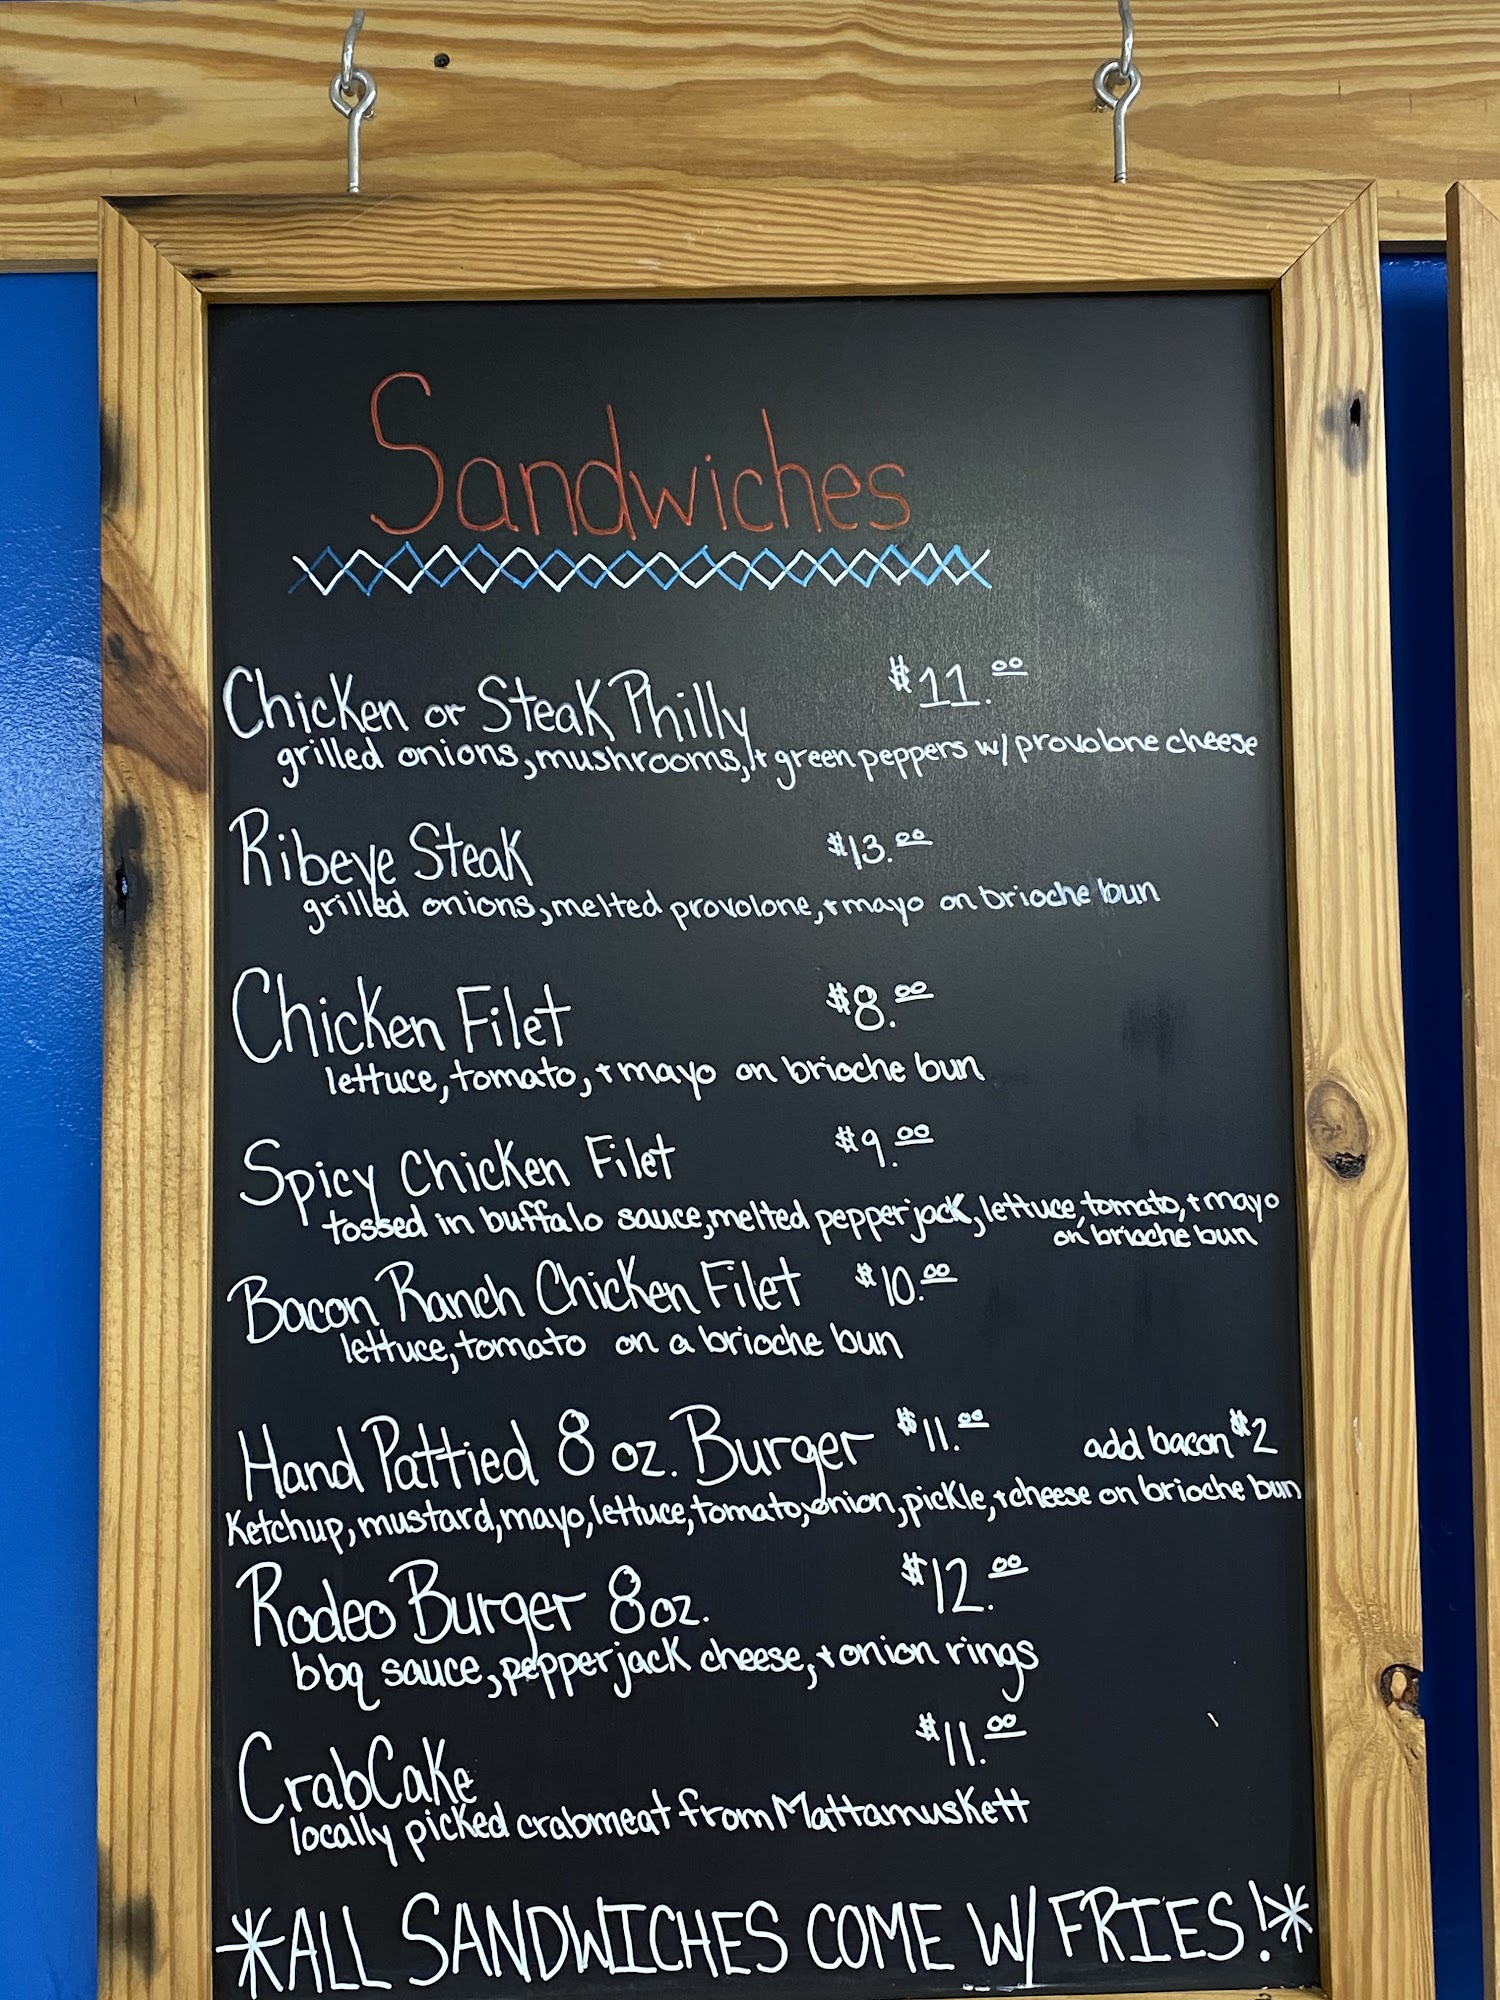 Sandwiches
Chicken or Steak Philly $11.00
grilled onions, mushrooms, + green peppers w/ provolone cheese
Ribeye Steak $13.00
grilled onions, melted provolone, + mayo on brioche bun
Chicken Filet $8.00
lettuce, tomato, + mayo on brioche bun
Spicy Chicken Filet $9.00
tossed in buffalo sauce, melted pepperjack, lettuce, tomato, + mayo
on brioche bun
Bacon Ranch Chicken Filet $10.00
lettuce, tomato on a brioche bun
Hand Pattied 8 oz. Burger $11.00 add bacon $2
Ketchup, mustard, mayo, lettuce, tomato, onion, pickle, + cheese on brioche bun
Rodeo Burger 8oz. $12.00
bbq sauce, pepperjack cheese, + onion rings
CrabCake $11.00
locally picked crabmeat from Mattamuskett
*ALL SANDWICHES COME W/ FRIES!*